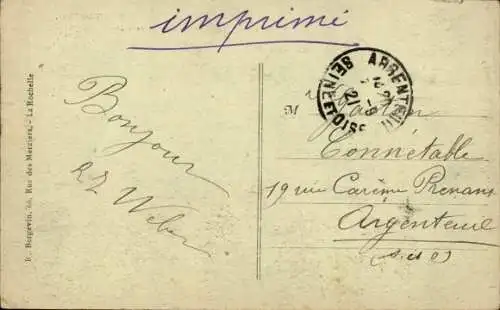 imprimé
ARGENTEUIL
SEINE ET OISE
21
Bonjour
Weber
M
Connétable
19 rue Carême Prenant
Argenteuil
(S. et O)
Bergevin, Rue des Merciers, - La Rochelle